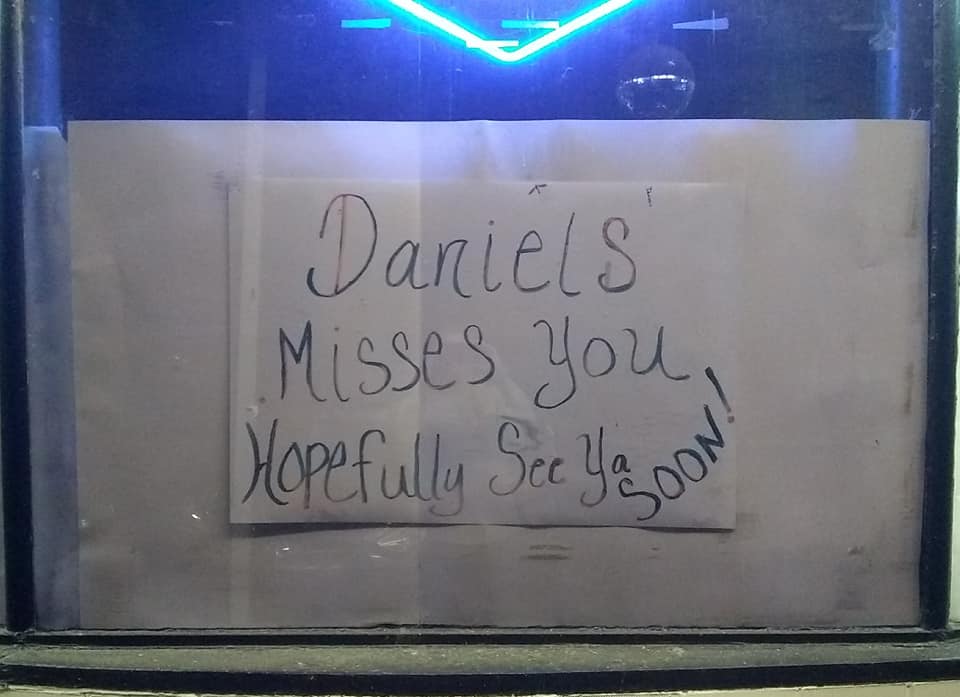 Daniels
Misses You
Hopefully See Ya SOON!